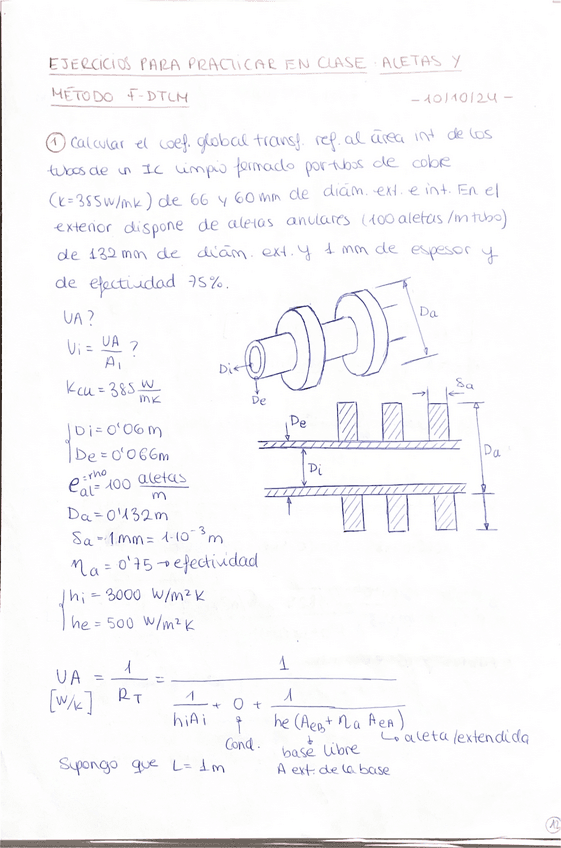 EJERCICIOS PARA PRACTICAR EN CLASE. ALETAS Y
MÉTODO F-DTLM
-10/10/24-
① Calcular el coef. global transf. ref. al área int de los
tubos de un IC limpio formado por tubos de cobre
(K=385W/mK) de 66 y 60mm de diám. ext. e int. En el
exterior dispone de aletas anulares (100 aletas/m tubo)
de 132mm de diám. ext. y 1 mm de espesor y
de efectividad 75%.
UA?
Ui = UA/Ai ?
Kcu = 385 W/mK
Di = 0'06m
De = 0'066m
=rho
ρal = 100 aletas/m
Da = 0'132m
δa = 1mm = 1·10⁻³ m
ηa = 0'75 → efectividad
hi = 3000 W/m²K
he = 500 W/m²K
Di
De
Da
De
Di
δa
Da
UA = 1/RT = 1/(1/(hiAi) + 0 + 1/(he(AeB + ηa AeA)))
[W/K]
Cond.
base libre
A ext. de la base
aleta/extendida
Supongo que L = 1m